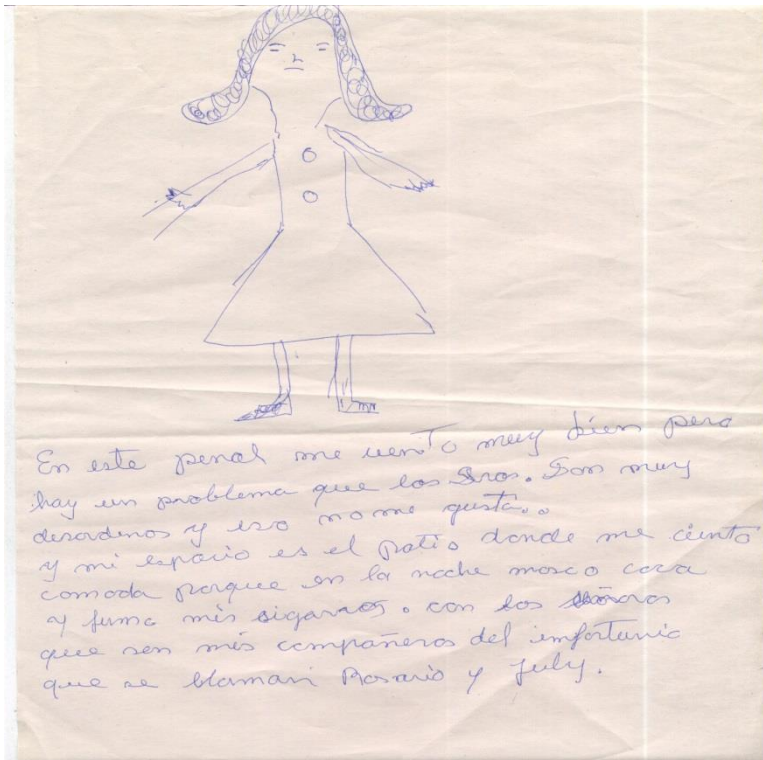 En este penal me ciento muy bien pero
hay un problema que las Sras. Son muy
desordenas y eso no me gusta..
y mi espacio es el patio donde me ciento
comoda porque en la noche masco coca
y fumo mis sigarros. con las señoras
que son mis compañeras del imfortunio
que se llaman Rosario y July.